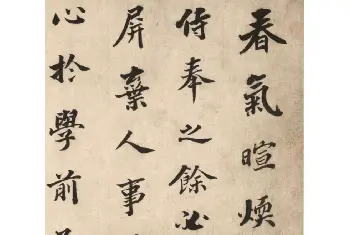 春氣暄煗
侍奉之餘必
屏棄人事
心於學前